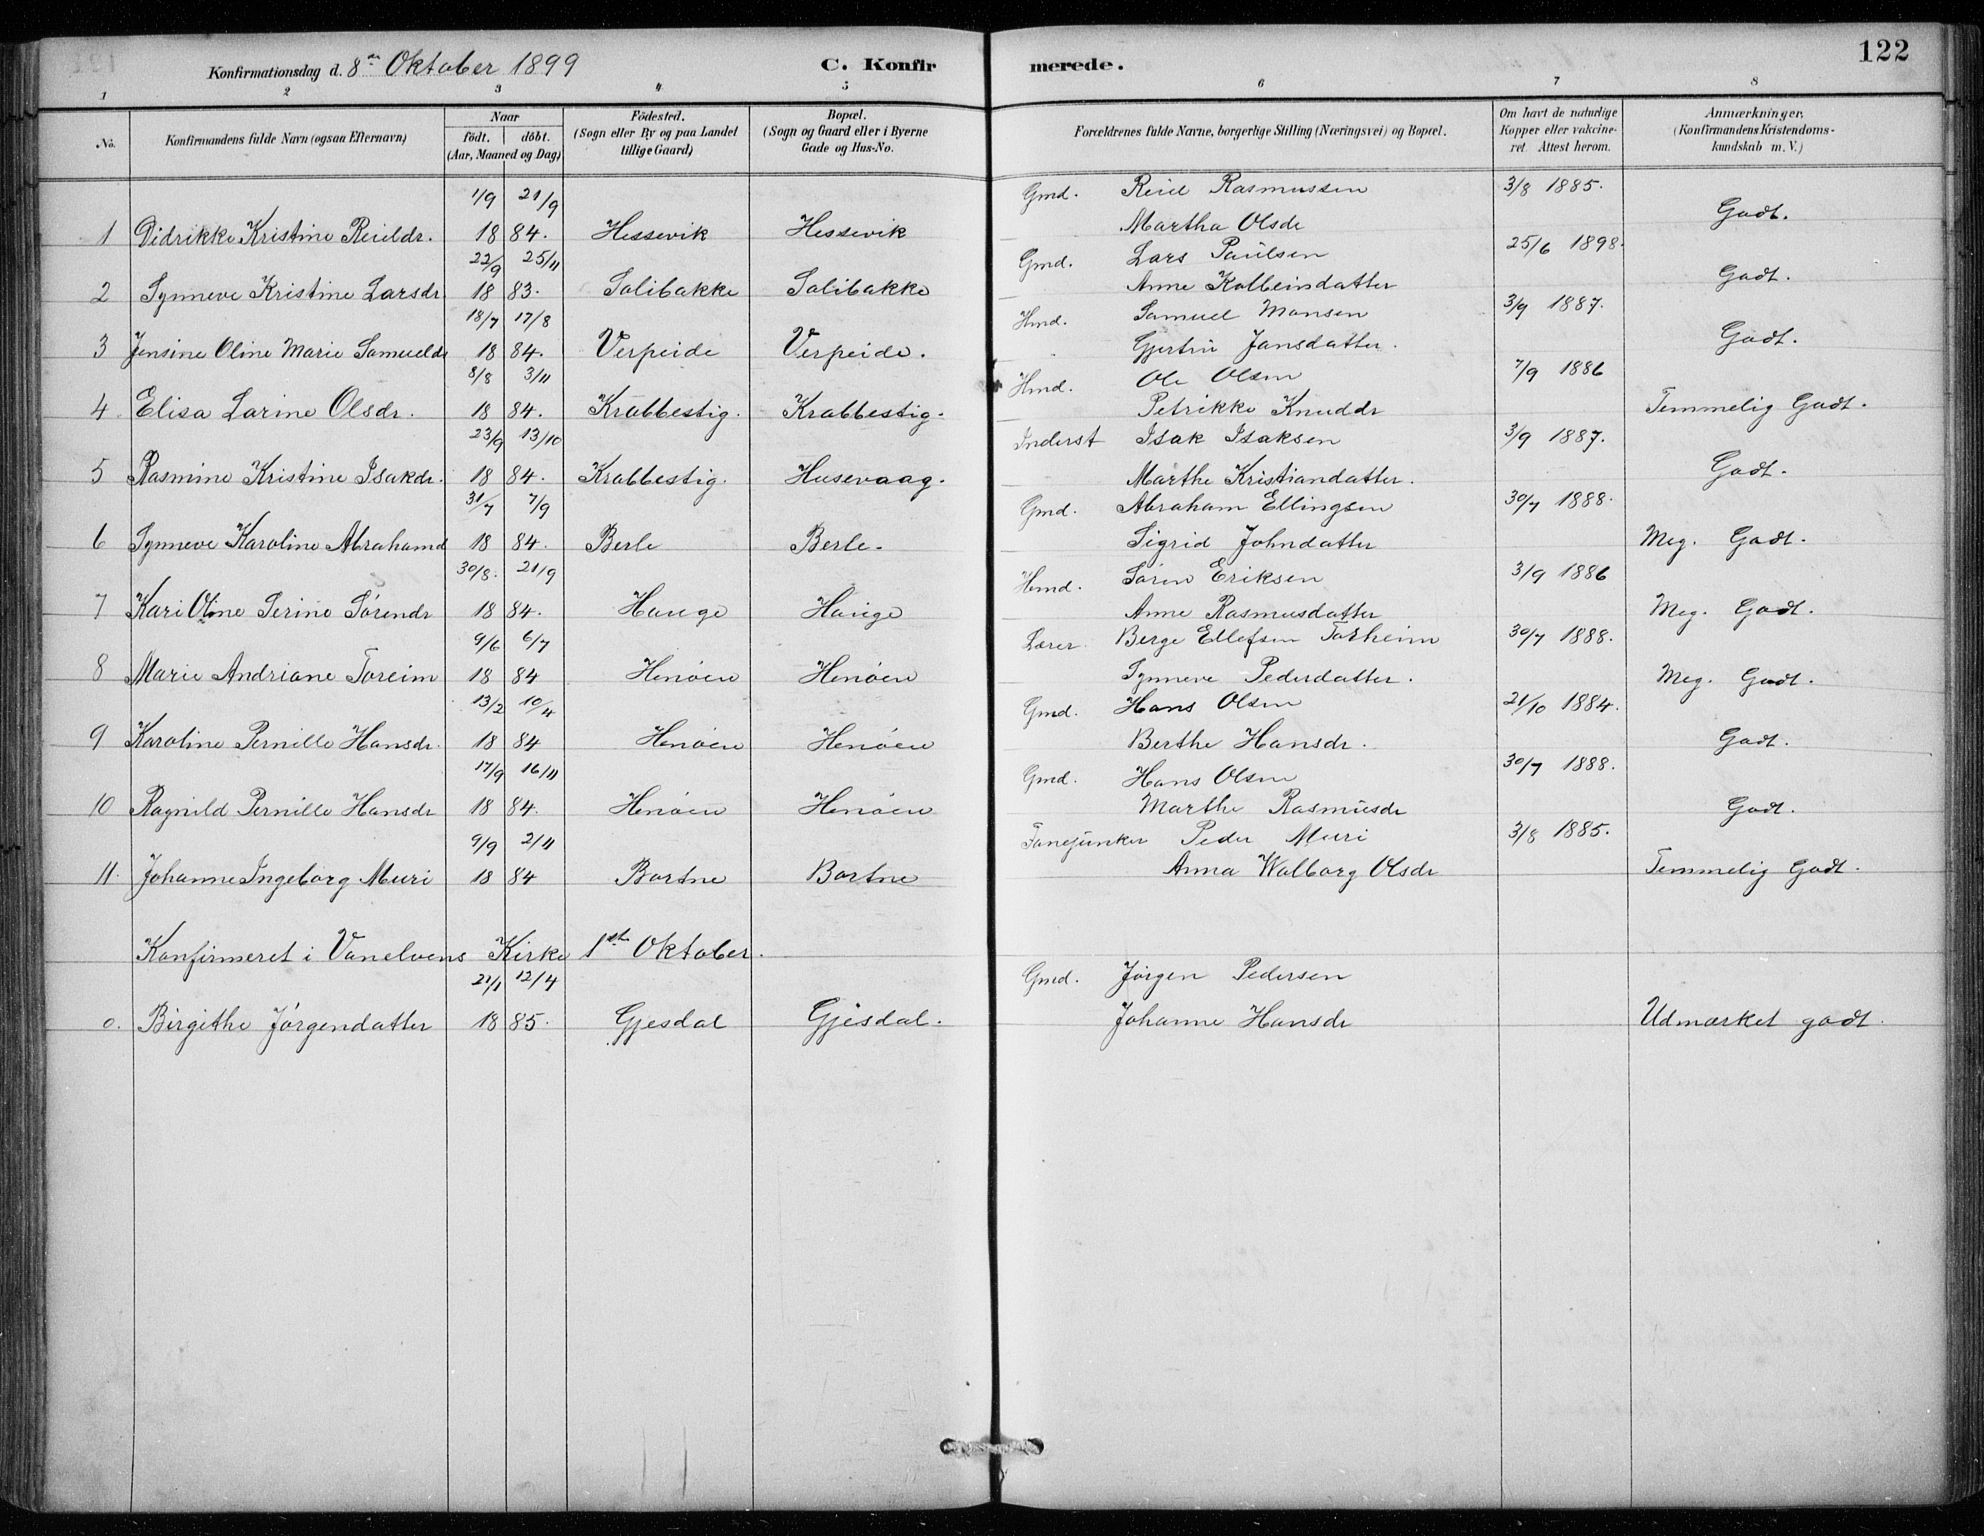 Konfirmationsdag d. 8de Oktober 1899 C. Konfirmerede. 122
1 2 3 4 5 6 7 8
No. Konfirmandens fulde Navn (ogsaa Efternavn) Naar födt. döbt. (Aar, Maaned og Dag) Födested. (Sogn eller By og paa Landet tillige Gaard) Bopæl. (Sogn og Gaard eller i Byerne Gade og Hus-No. Forældrenes fulde Navne, borgerlige Stilling (Næringsvei) og Bopæl. Om havt de naturlige Kopper eller vakcineret. Attest herom. Anmærkninger. (Konfirmandens Kristendomskundskab m. V.)
1/9 21/9 Gmd. Reiel Rasmussen 3/8 1885.
1 Didrikke Kristine Reieldr. 18 84. Hessevik Hessevik Martha Olsdr Godt.
22/9 25/11 Gmd. Lars Paulsen 25/6 1898.
2 Synneve Kristine Larsdr 18 83. Solibakke Solibakke Anne Kolbeindatter Godt.
18/7 17/8 Hmd. Samuel Monsen 3/9 1887.
3 Jensine Oline Marie Samueldr 18 84. Verpeide Verpeide. Gjertru Jansdatter. Godt.
8/8 3/11 Hmd. Ole Olsen 7/9 1886
4. Elisa Larine Olsdr. 18 84. Krabbestig. Krabbestig. Petrikke Knuddr Temmelig Godt.
23/9 13/10 Inderst Isak Isaksen 3/9 1887.
5 Rasmine Kristine Isakdr. 18 84. Krabbestig. Husevaag. Marthe Kristiandatter. Godt.
31/7 7/9 Gmd. Abraham Ellingsen 30/7 1888.
6 Synneve Karoline Abrahamd 18 84. Berle Berle. Sigrid Johndatter Meg. Godt.
30/8. 21/9 Hmd. Sören Eriksen 3/9 1886
7 Kari Oline Serine Sörendr 18 84. Hauge Hauge Anne Rasmusdatter Meg. Godt.
9/6 6/7 Lærer Berge Ellefsen Torheim 30/7 1888.
8 Marie Andriane Toreim 18 84 Henöen Henöen Synneve Pederdatter. Meg. Godt.
13/2 10/4 Gmd. Hans Olsen 21/10 1884.
9 Karoline Pernille Hansdr. 18 84 Henöen Henöen Berthe Hansdr. Godt.
17/9 16/11 Gmd. Hans Olsen 30/7 1888.
10 Ragnild Pernille Hansdr 18 84. Henöen Henöen Marthe Rasmusdr Godt.
9/9 2/11 Fanejunker Peder Muri 3/8 1885.
11. Johanne Ingeborg Muri 18 84 Bortne Bortne Anna Walborg Olsdr Temmelig Godt.
Konfirmeret i Vanelvens Kirke 1st Oktober.
21/1 12/4 Gmd. Jörgen Pedersen
o. Birgithe Jörgendatter 18 85. Gjesdal Gjesdal. Johanne Hansdr Udmærket godt.